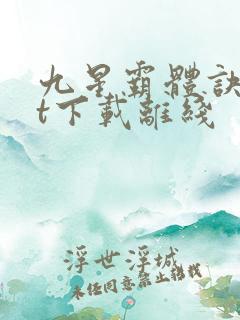 九星霸體訣
t下載離綫
浮世浮城
未經同意禁止轉載